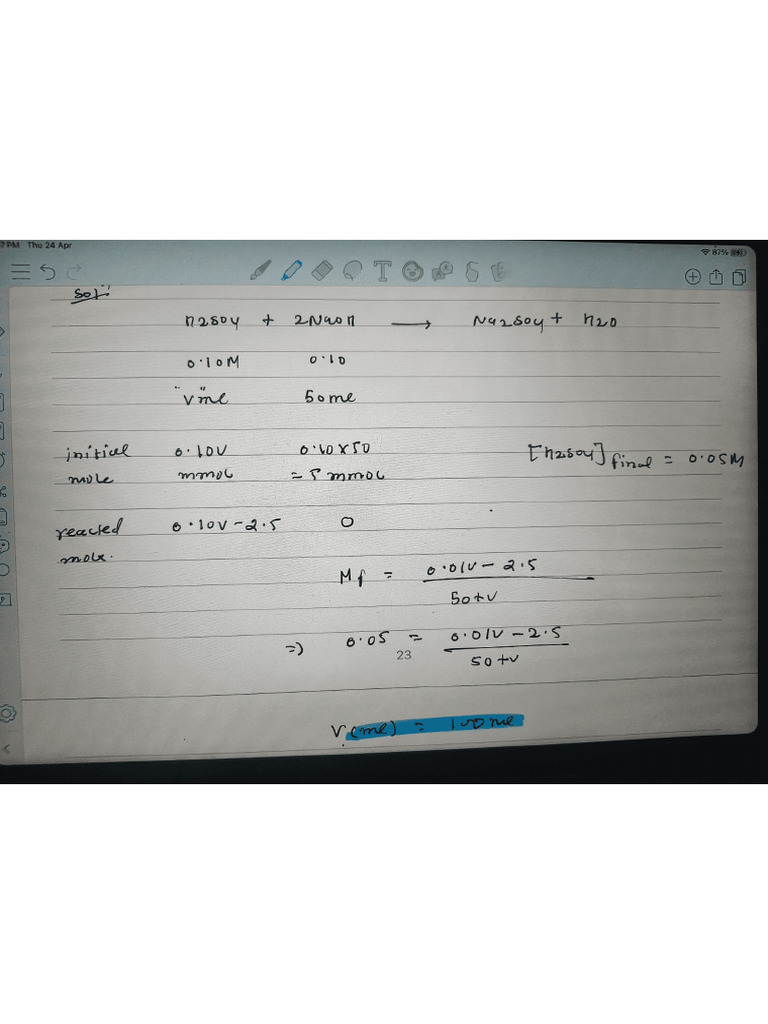 7 PM Thu 24 Apr
87%
Sol:
H2SO4 + 2NaOH → Na2SO4 + H2O
0.10M 0.10
"V"ml 50ml
initial 0.10V 0.10×50 [H2SO4]final = 0.05M
mole mmol = 5 mmol
reacted 0.10V-2.5 0
mole.
Mf = 0.01V - 2.5
50+V
=) 0.05 = 0.01V - 2.5
50+V
23
V(ml) = 100ml